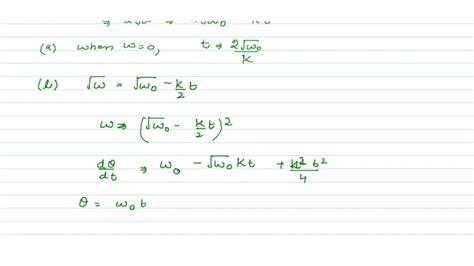 (a) when ω=0, t ⇒ 2√ω₀/K
(b) √ω = √ω₀ − K/2 t
ω ⇒ (√ω₀ − K/2 t)²
dθ/dt ⇒ ω₀ − √ω₀ Kt + K² t²/4
θ = ω₀ t